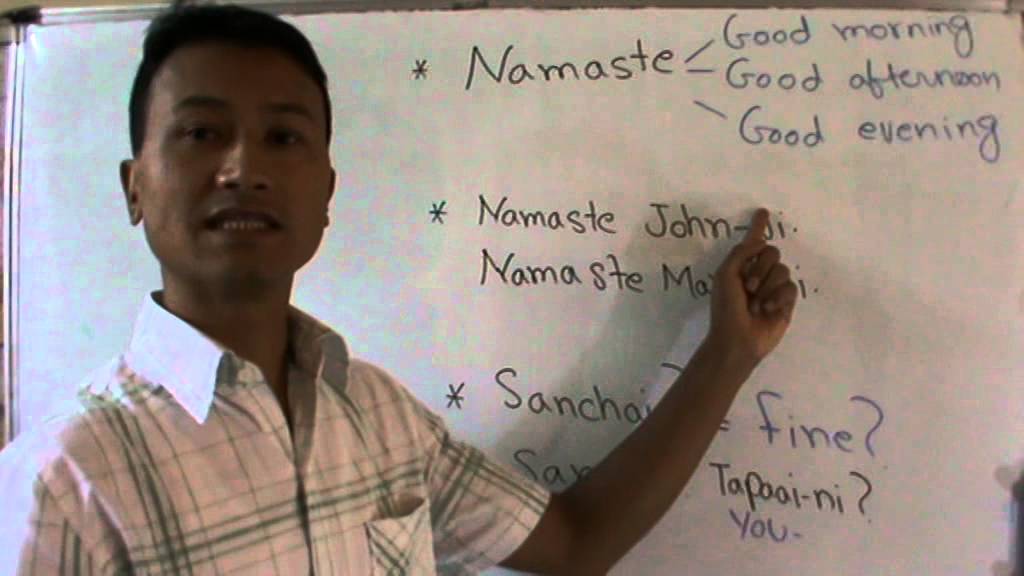 * Namaste Good morning
Good afternoon
Good evening
* Namaste John-ji.
Namaste
* Sanchai = fine?
Tapaai-ni?
You-